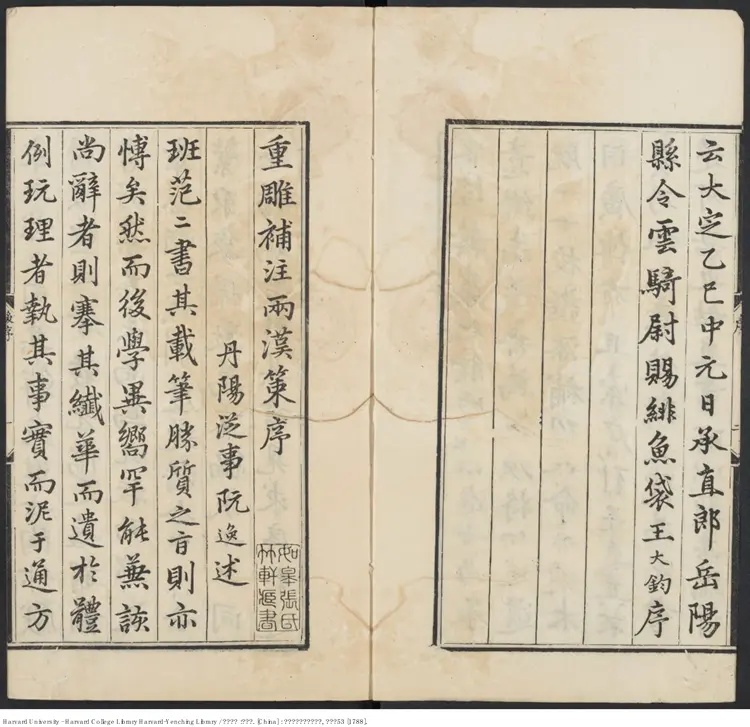 云大定乙巳中元日承直郎岳陽
縣令雲騎尉賜緋魚袋王大鈞序
重雕補注兩漢策序
丹陽從事阮逸述
班范二書其載筆勝質之旨則亦
博矣然而後學異嚮罕能兼該
尚辭者則搴其纖華而遺於體
例玩理者執其事實而泥于通方
如皋張氏
竹軒藏書
Harvard University - Harvard College Library Harvard-Yenching Library / ???? :???. [China] : ??????????, ???53 [1788].